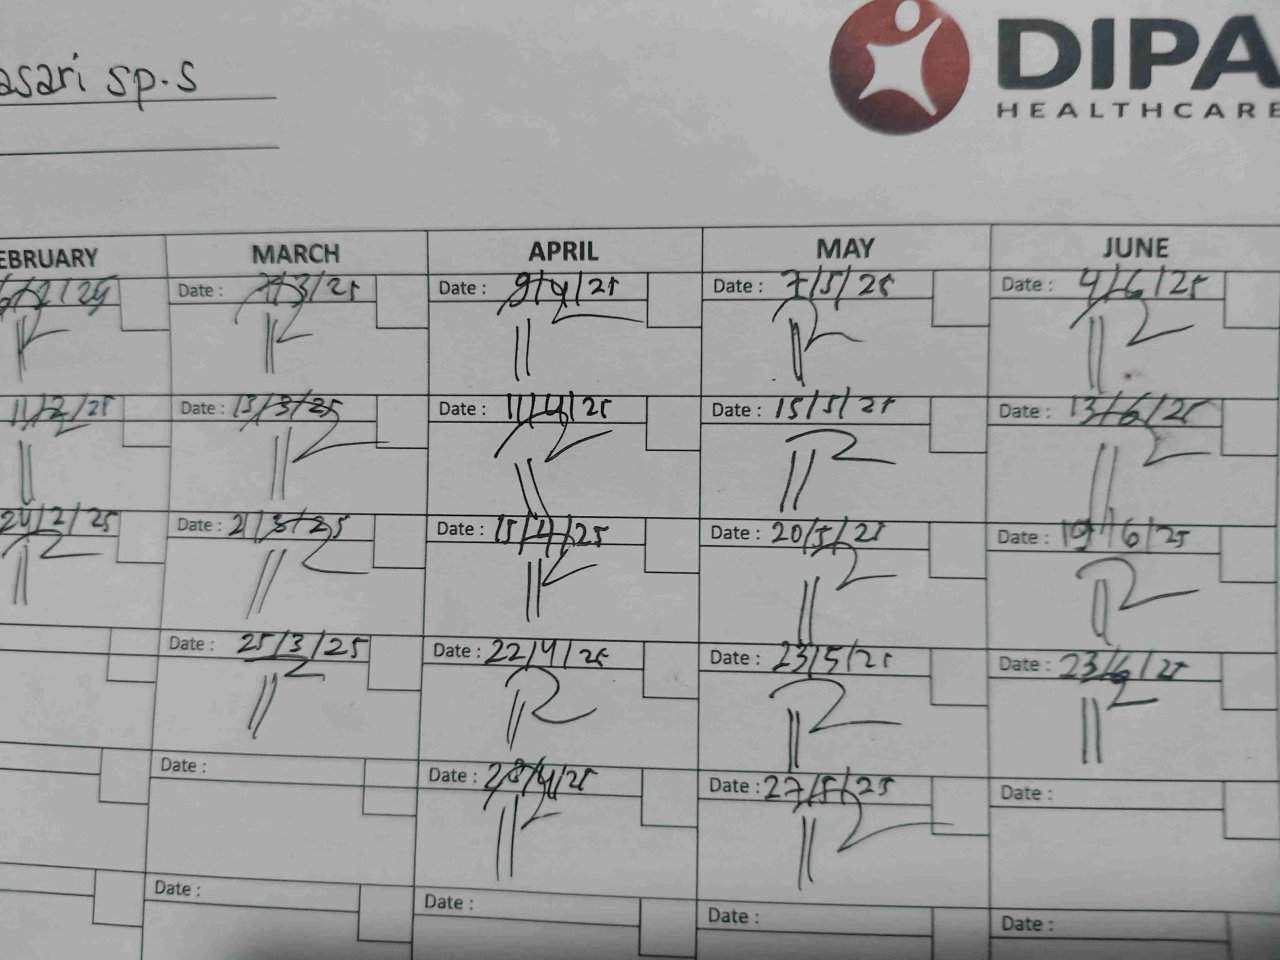 asari sp.s
DIPA
HEALTHCARE
EBRUARY MARCH APRIL MAY JUNE
Date : 7/3/25 Date : 9/4/25 Date : 7/5/25 Date : 4/6/25
11/2/25 Date : 13/3/25 Date : 11/4/25 Date : 15/5/25 Date : 13/6/25
24/2/25 Date : 21/3/25 Date : 15/4/25 Date : 20/5/25 Date : 19/6/25
Date : 25/3/25 Date : 22/4/25 Date : 23/5/25 Date : 23/6/25
Date : Date : 28/4/25 Date : 27/5/25 Date :
Date : Date : Date : Date :